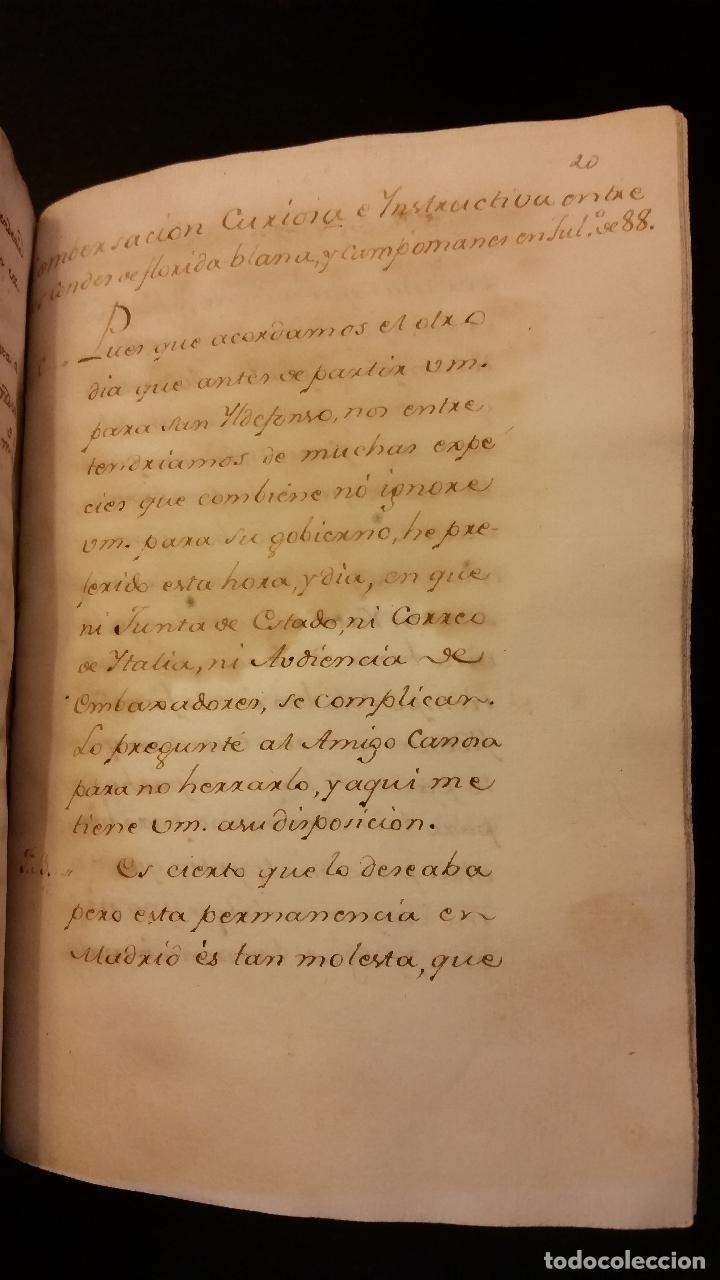 20
Combersación Curiosa e Ynstructiva entre
Condes de florida blana, y Campomanes en Jul.º de 88.
C. Pues que acordamos el otro
dia que antes de partir vm.
para San Yldefonso, nos entre
tendriamos de muchas espe
cies que combiene nó ignore
vm. para su gobierno, he pre-
ferido esta hora, y dia, en que
ni Junta de Estado, ni Correo
de Ytalia, ni Audiencia de
Embaxadores, se complican.
Lo pregunté al Amigo Canosa
para no herrarlo, y aqui me
tiene vm. a su disposicion.
F.B. " Es cierto que lo deseaba
pero esta permanencia en
Madrid és tan molesta, que
todocoleccion